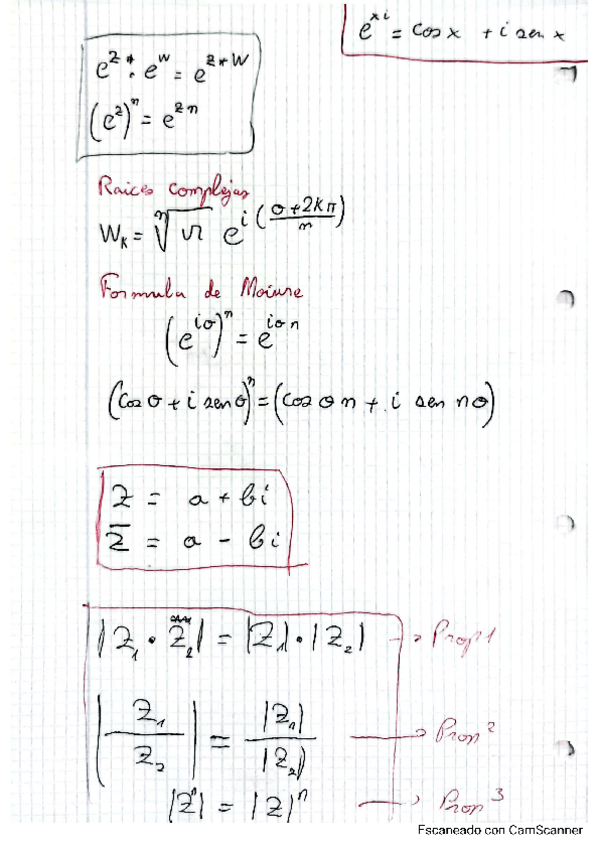 e^{xi} = cos x + i sen x
e^z · e^w = e^{z+w}
(e^z)^n = e^{zn}
Raices complejas
W_k = \sqrt[n]{r} e^{i(\frac{σ+2kπ}{n})}
Formula de Moivre
(e^{iσ})^n = e^{iσn}
(cos σ + i sen σ)^n = (cos σ n + i sen nσ)
z = a + bi
\overline{z} = a - bi
|z_1 · z_2| = |z_1| · |z_2| → Prop 1
|\frac{z_1}{z_2}| = \frac{|z_1|}{|z_2|} → Prop 2
|z^n| = |z|^n → Prop 3
Escaneado con CamScanner